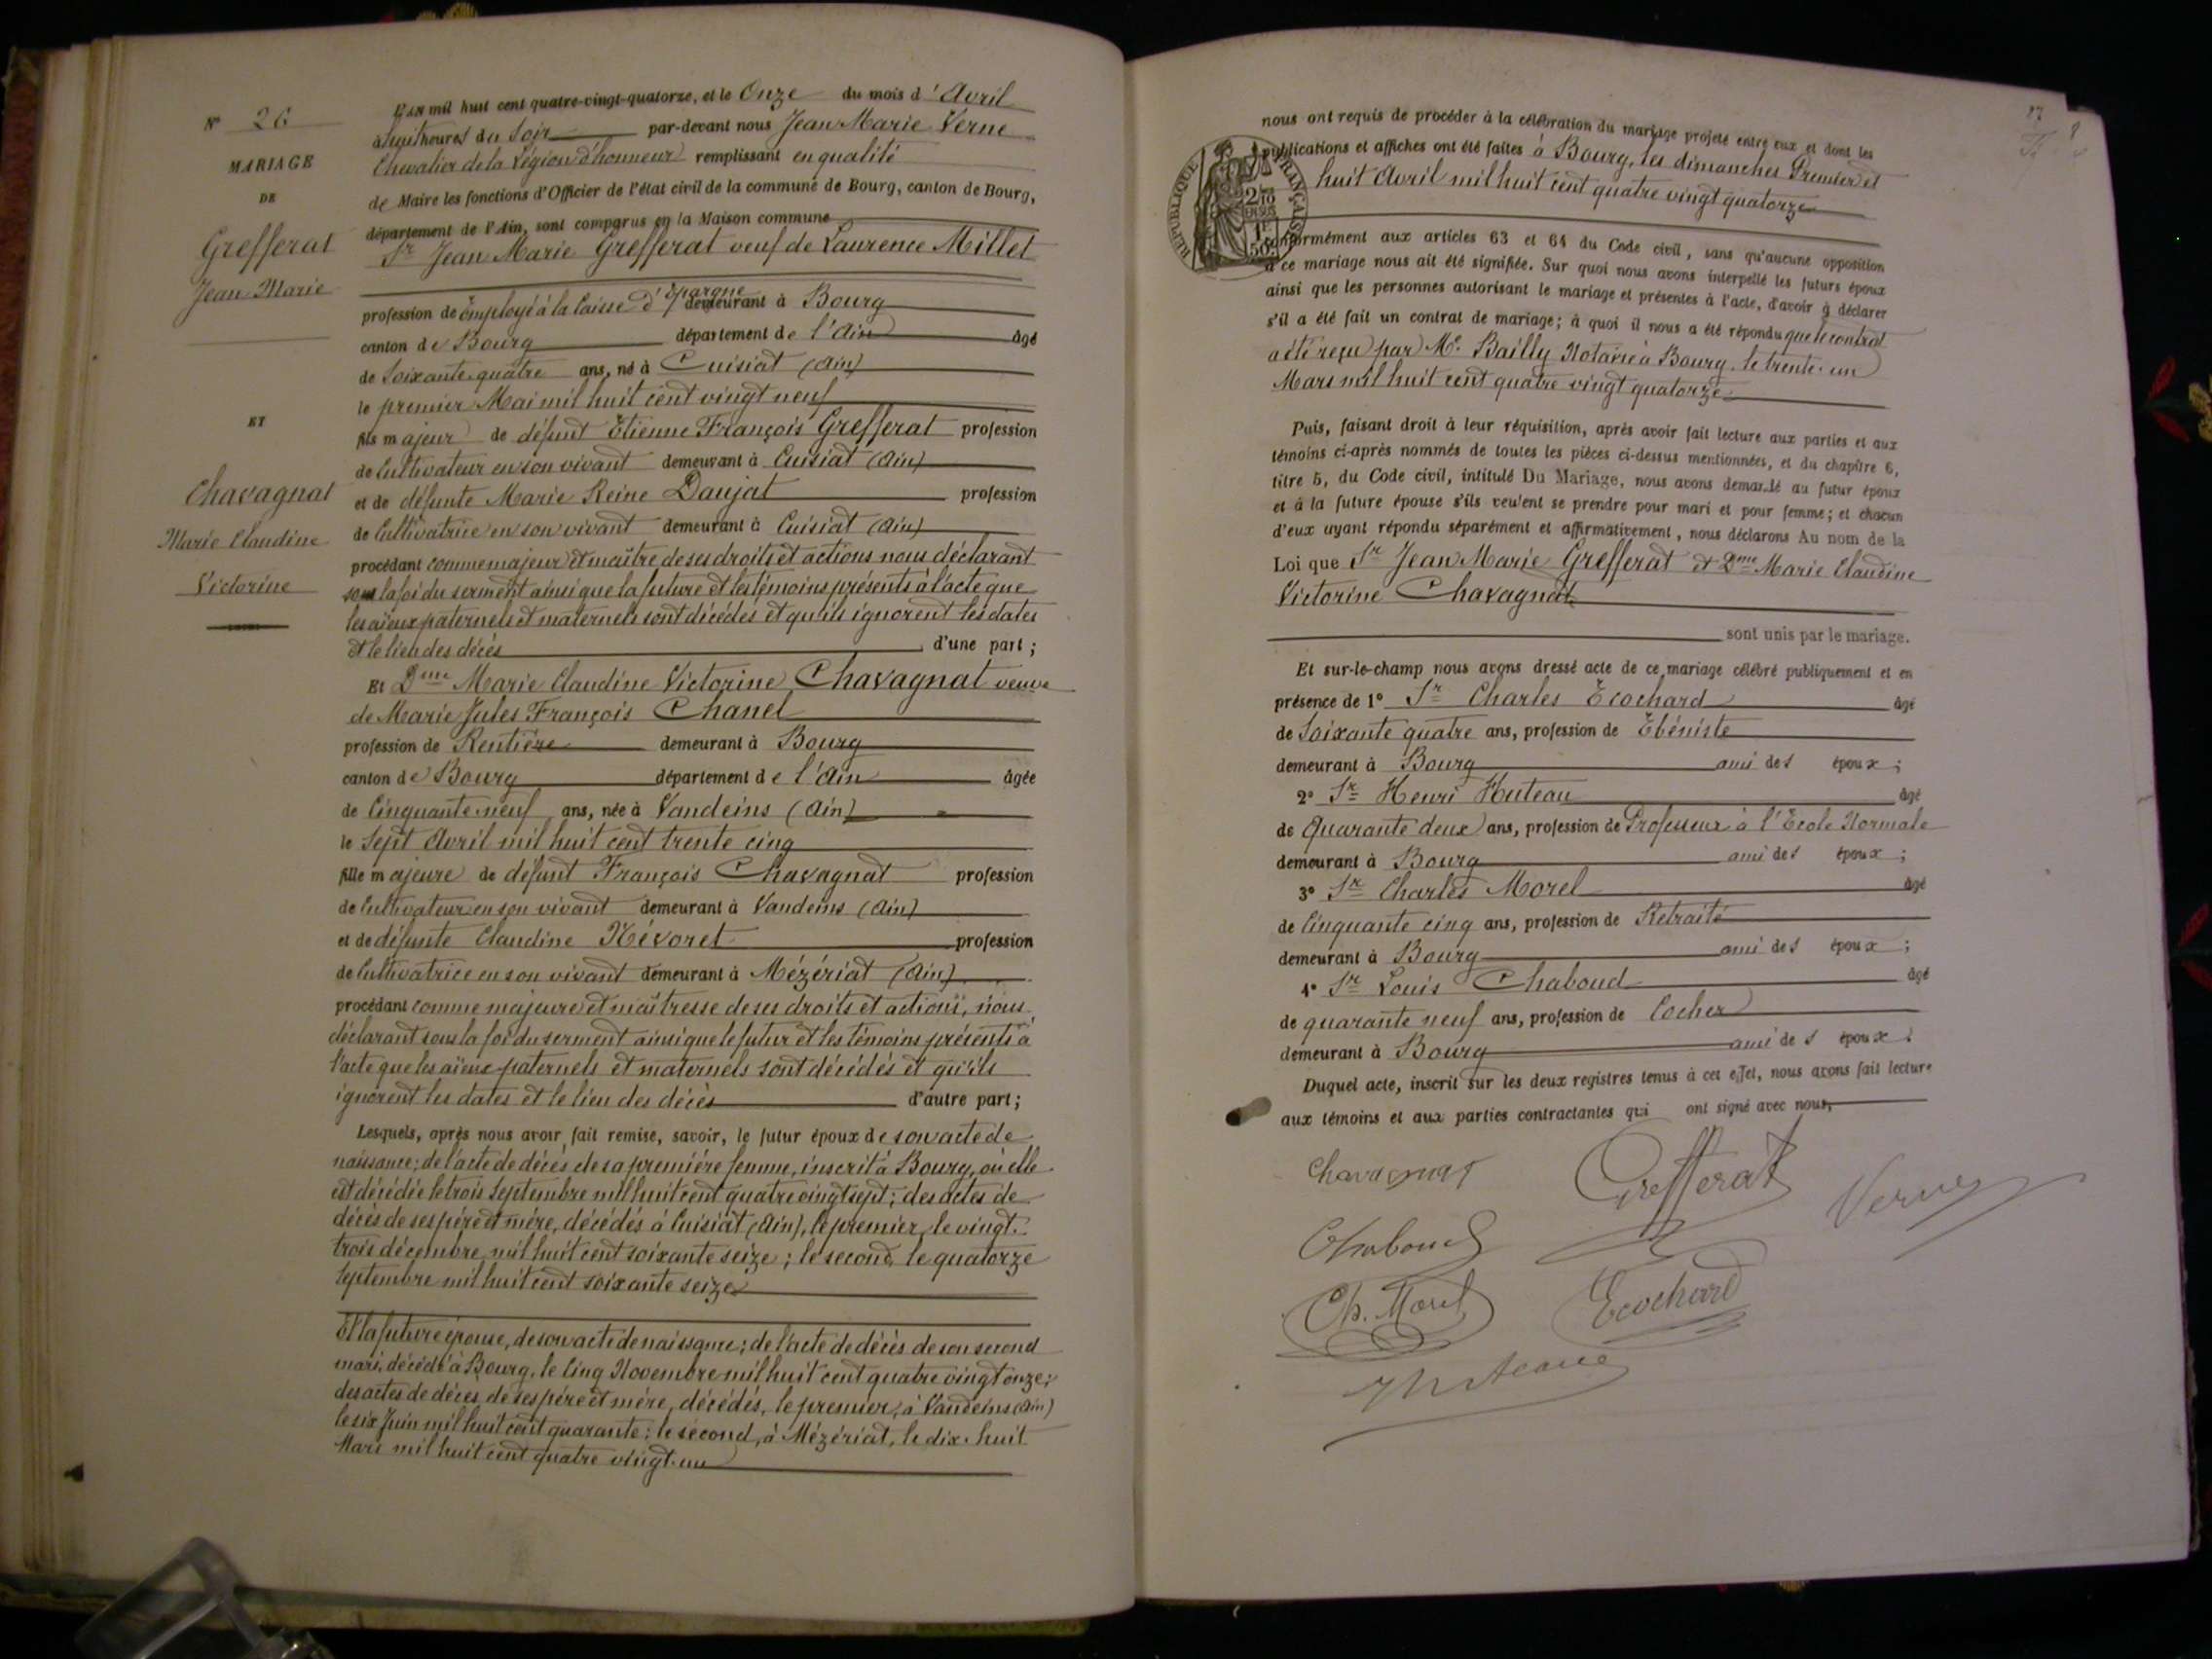 N° 26
MARIAGE
DE
Grefferat
Jean Marie
ET
Chavagnat
Marie Claudine
Victorine
L'AN mil huit cent quatre-vingt-quatorze, et le Onze du mois d'Avril
à huit heures du Soir par-devant nous Jean Marie Verne
Chevalier de la Légion d'honneur remplissant en qualité
de Maire les fonctions d'Officier de l'état civil de la commune de Bourg, canton de Bourg,
département de l'Ain, sont comparus en la Maison commune
Sr Jean Marie Grefferat veuf de Laurence Millet
profession de Employé à la Caisse d'Epargne demeurant à Bourg
canton de Bourg département de l'Ain âgé
de Soixante-quatre ans, né à Cuisiat (Ain)
le premier Mai mil huit cent vingt neuf
fils majeur de défunt Etienne François Grefferat profession
de Cultivateur en son vivant demeurant à Cuisiat (Ain)
et de défunte Marie Reine Daujat profession
de Cultivatrice en son vivant demeurant à Cuisiat (Ain)
procédant comme majeur et maître de ses droits et actions nous déclarant
sous la foi du serment ainsi que la future et les témoins présents à l'acte que
les aïeux paternels et maternels sont décédés et qu'ils ignorent les dates
et le lieu des décès d'une part ;
Et Dme Marie Claudine Victorine Chavagnat veuve
de Marie Jules François Chanel
profession de Rentière demeurant à Bourg
canton de Bourg département de l'Ain âgée
de Cinquante-neuf ans, née à Vandeins (Ain)
le Sept Avril mil huit cent trente cinq
fille majeure de défunt François Chavagnat profession
de Cultivateur en son vivant demeurant à Vandeins (Ain)
et de défunte Claudine Névoret profession
de Cultivatrice en son vivant demeurant à Mézériat (Ain)
procédant comme majeure et maîtresse de ses droits et actions, nous
déclarant sous la foi du serment ainsi que le futur et les témoins présents à
l'acte que les aïeux paternels et maternels sont décédés et qu'ils
ignorent les dates et le lieu des décès d'autre part ;
Lesquels, après nous avoir fait remise, savoir, le futur époux de son acte de
naissance ; de l'acte de décès de sa première femme, inscrit à Bourg, où elle
est décédée le trois Septembre mil huit cent quatre vingt sept ; des actes de
décès de ses père et mère, décédés à Cuisiat (Ain), le premier, le vingt-
trois décembre mil huit cent soixante seize ; le second, le quatorze
Septembre mil huit cent soixante seize
Et la future épouse, de son acte de naissance ; de l'acte de décès de son second
mari, décédé à Bourg, le Cinq Novembre mil huit cent quatre vingt onze ;
des actes de décès de ses père et mère, décédés, le premier, à Vandeins (Ain)
le six Juin mil huit cent quarante ; le second, à Mézériat, le dix-huit
Mars mil huit cent quatre vingt-un
17
nous ont requis de procéder à la célébration du mariage projeté entre eux et dont les
publications et affiches ont été faites à Bourg, les dimanches Premier et
huit Avril mil huit cent quatre vingt quatorze
RÉPUBLIQUE FRANÇAISE
2/10 EN SUS
1F 50C
conformément aux articles 63 et 64 du Code civil, sans qu'aucune opposition
à ce mariage nous ait été signifiée. Sur quoi nous avons interpellé les futurs époux
ainsi que les personnes autorisant le mariage et présentes à l'acte, d'avoir à déclarer
s'il a été fait un contrat de mariage ; à quoi il nous a été répondu que le contrat
a été reçu par Me Bailly Notaire à Bourg, le trente-un
Mars mil huit cent quatre vingt quatorze
Puis, faisant droit à leur réquisition, après avoir fait lecture aux parties et aux
témoins ci-après nommés de toutes les pièces ci-dessus mentionnées, et du chapitre 6,
titre 5, du Code civil, intitulé Du Mariage, nous avons demandé au futur époux
et à la future épouse s'ils veulent se prendre pour mari et pour femme ; et chacun
d'eux ayant répondu séparément et affirmativement, nous déclarons Au nom de la
Loi que Sr Jean Marie Grefferat et Dme Marie Claudine
Victorine Chavagnat
sont unis par le mariage.
Et sur-le-champ nous avons dressé acte de ce mariage célébré publiquement et en
présence de 1° Sr Charles Ecochard âgé
de Soixante quatre ans, profession de Ebéniste
demeurant à Bourg ami des époux ;
2° Sr Henri Huteau âgé
de Quarante deux ans, profession de Professeur à l'Ecole Normale
demeurant à Bourg ami des époux ;
3° Sr Charles Morel âgé
de Cinquante cinq ans, profession de Retraité
demeurant à Bourg ami des époux ;
4° Sr Louis Chaboud âgé
de quarante neuf ans, profession de Cocher
demeurant à Bourg ami des époux.
Duquel acte, inscrit sur les deux registres tenus à cet effet, nous avons fait lecture
aux témoins et aux parties contractantes qui ont signé avec nous,
Chavagnat Grefferat Verne
Chaboud
Ch. Morel Ecochard
Huteau